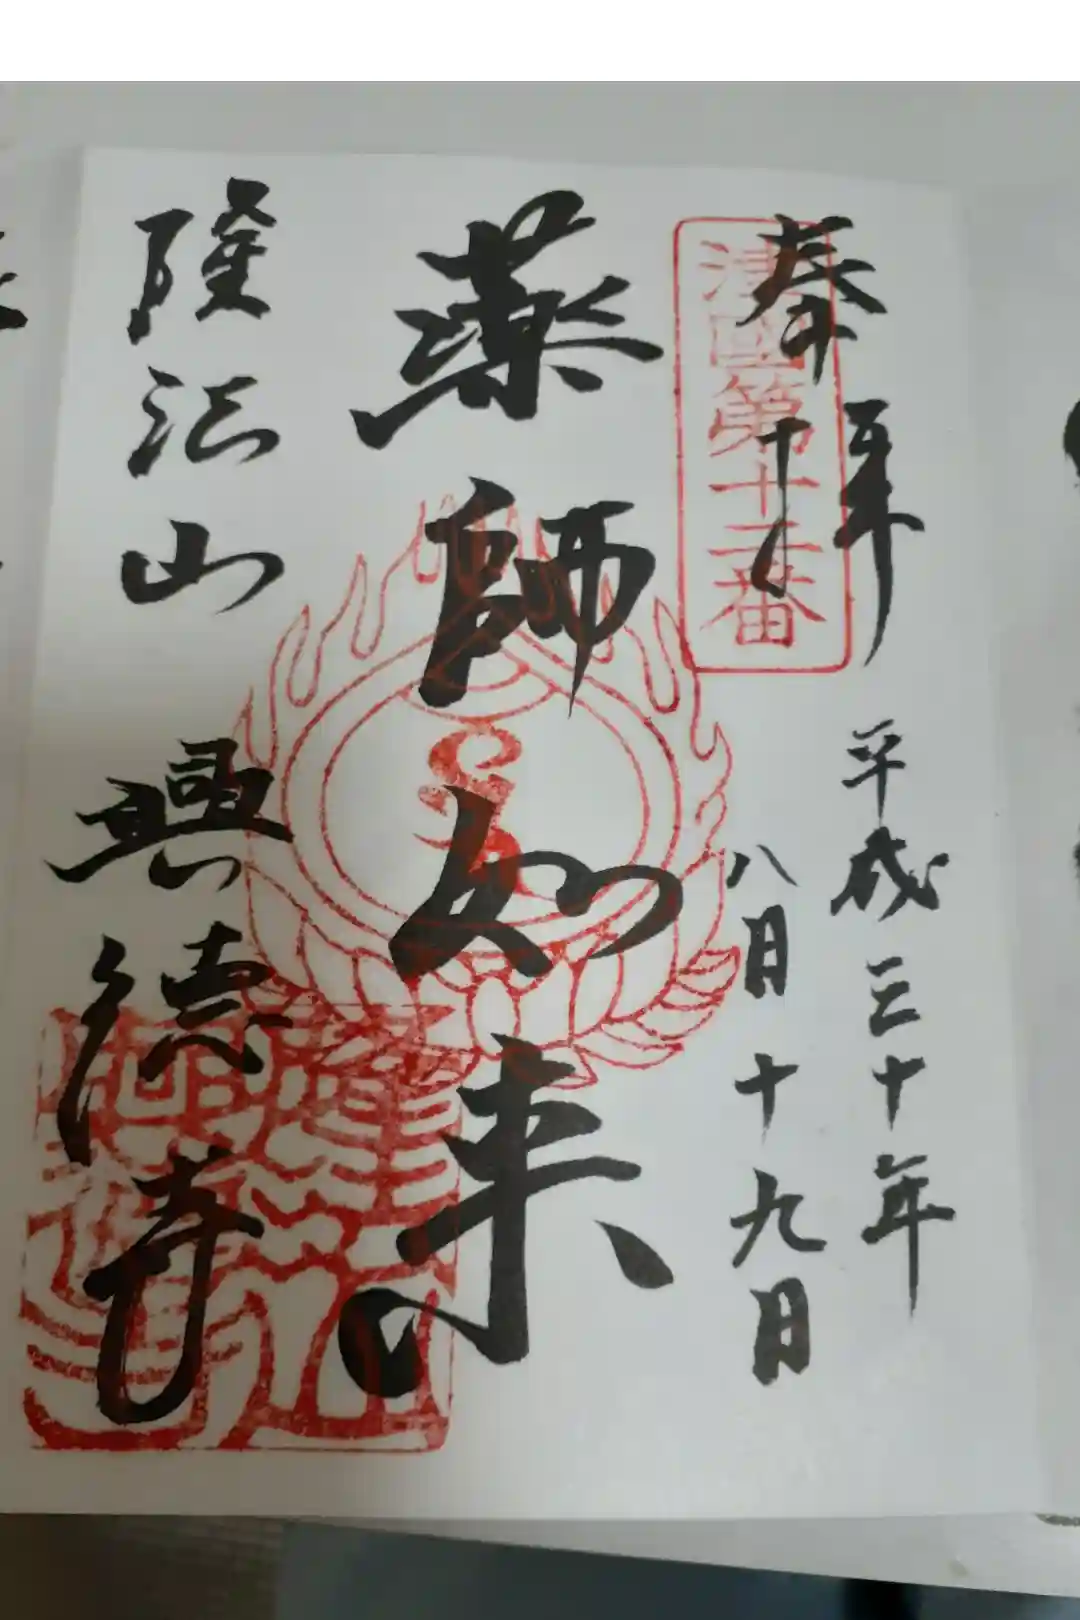 奉拝
津國第十二番
平成三十年
八月十九日
薬師如来
隆法山 興徳寺